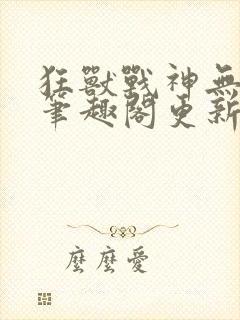 狂獸戰神無
筆趣閣更新
麼麼愛